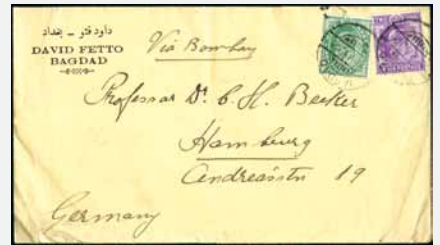 داود فتو - بغداد
DAVID FETTO
BAGDAD
Via Bombay
Professor Dr. C. H. Becker
Hamburg
Andreasstr 19
Germany